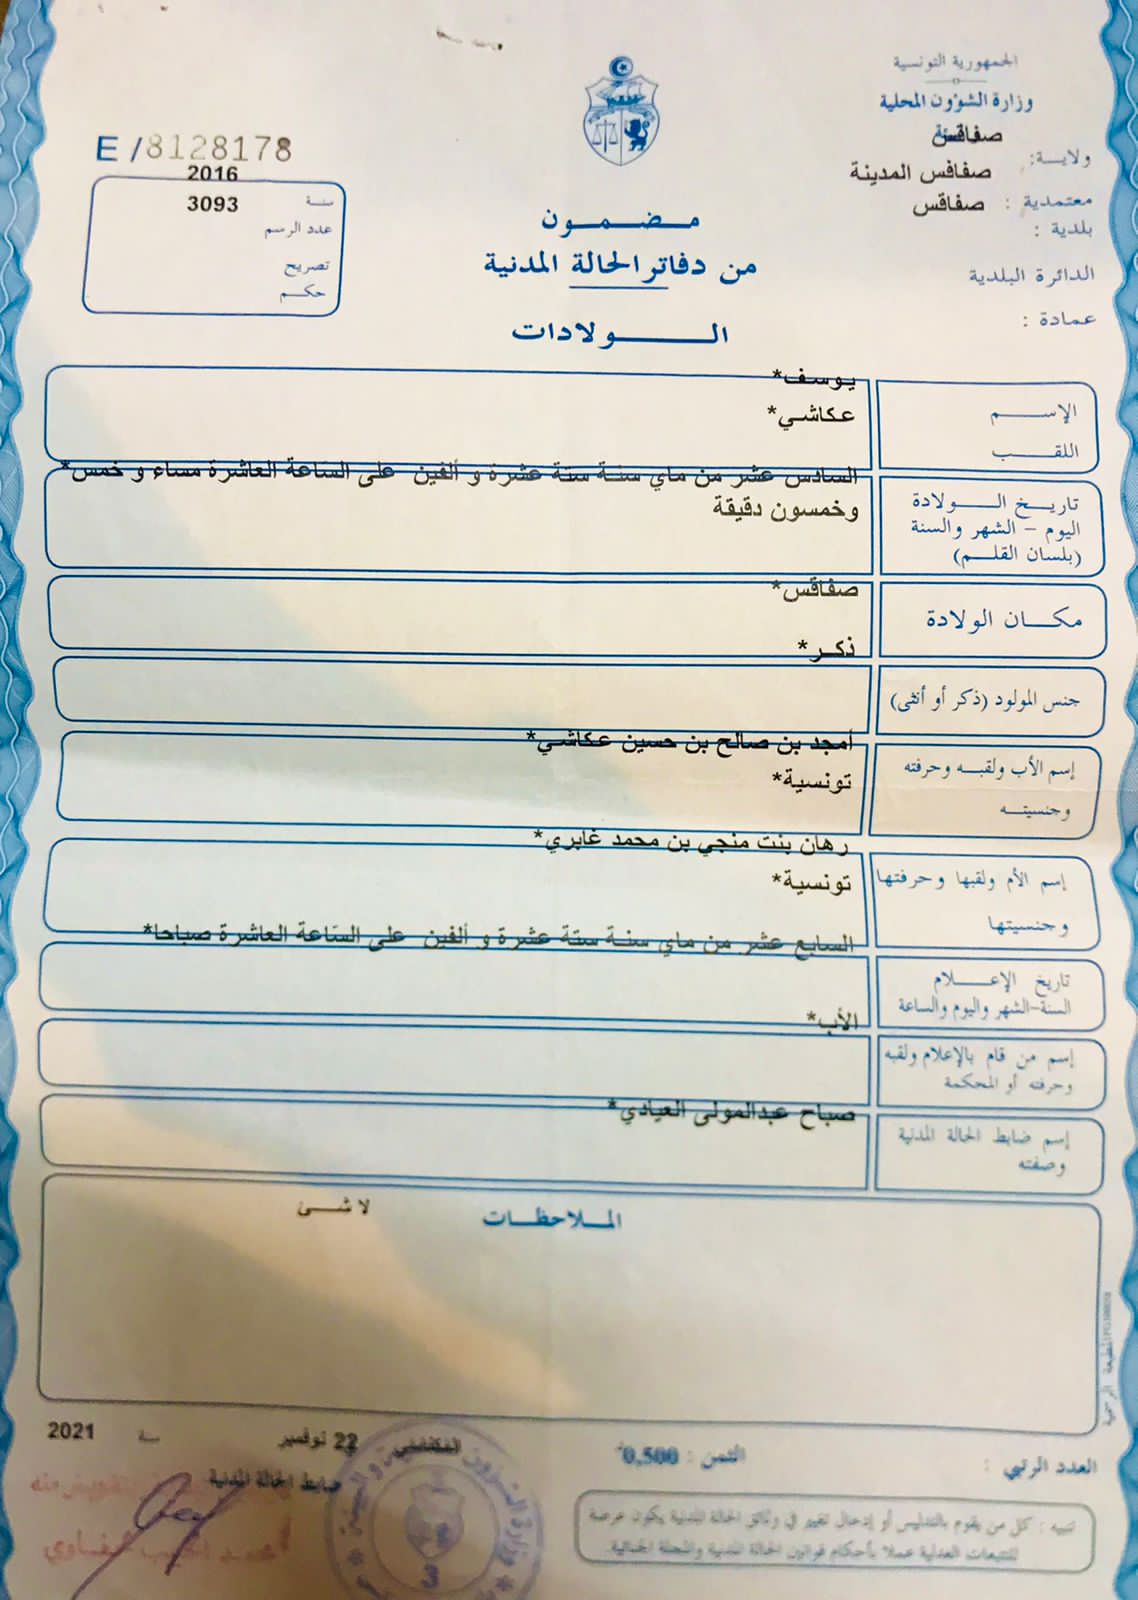 الجمهورية التونسية
وزارة الشؤون المحلية
صفاقس
ولاية:
صفاقس المدينة
معتمدية :
صفاقس
بلدية :
الدائرة البلدية
عمادة :
E /8128178
2016
سنة
3093
عدد الرسم
تصريح
حكم
مضمون
من دفاتر الحالة المدنية
الولادات
يوسف*
الإسم
عكاشي*
اللقب
السادس عشر من ماي سنة ستة عشرة و ألفين على الساعة العاشرة مساء و خمس*
وخمسون دقيقة
تاريخ الولادة
اليوم - الشهر والسنة
(بلسان القلم)
صفاقس*
مكان الولادة
ذكر*
جنس المولود (ذكر أو أنثى)
أمجد بن صالح بن حسين عكاشي*
إسم الأب ولقبه وحرفته
تونسية*
وجنسيته
رهان بنت منجي بن محمد غابري*
إسم الأم ولقبها وحرفتها
تونسية*
وجنسيتها
السابع عشر من ماي سنة ستة عشرة و ألفين على الساعة العاشرة صباحا*
تاريخ الإعلام
السنة-الشهر واليوم والساعة
الأب*
إسم من قام بالإعلام ولقبه
وحرفته أو المحكمة
صباح عبدالمولى العيادي*
إسم ضابط الحالة المدنية
وصفته
الملاحظات
لا شئ
المطبعة الرسمية
العدد الرتبي :
الثمن : 0,500
22 نوفمبر
سنة
2021
ضابط الحالة المدنية
تنبيه : كل من يقوم بالتدليس أو إدخال تغيير في وثائق الحالة المدنية يكون عرضة
للتتبعات العدلية عملا بأحكام قوانين الحالة المدنية والمجلة الجنائية.